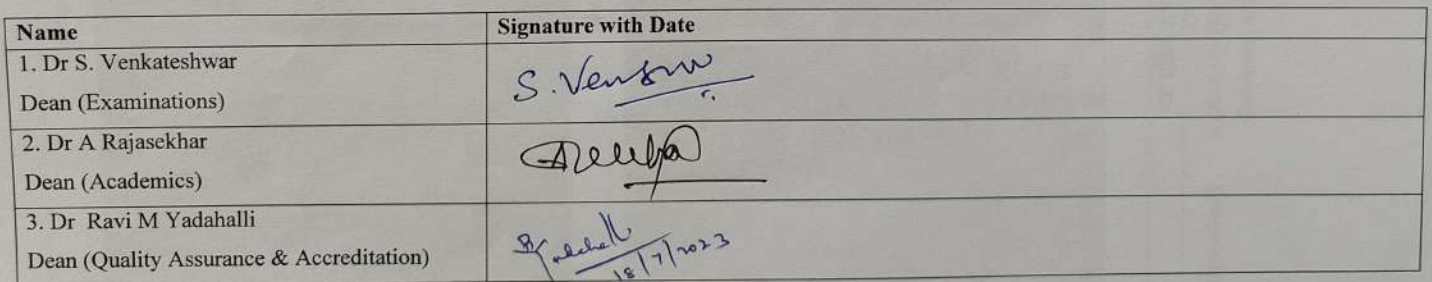 Name
Signature with Date
1. Dr S. Venkateshwar
Dean (Examinations)
2. Dr A Rajasekhar
Dean (Academics)
3. Dr Ravi M Yadahalli
Dean (Quality Assurance & Accreditation)
18/7/2023